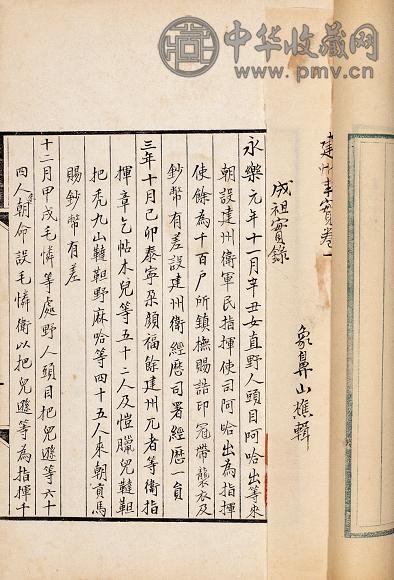 中华收藏网
www.pmv.cn
建州事實卷一
象鼻山樵輯
成祖實錄
永樂元年十一月辛丑女直野人頭目阿哈出等來
朝設建州衛軍民指揮使司阿哈出為指揮
使餘為千百戶所鎮撫賜誥印冠帶襲衣及
鈔幣有差設建州衛經歷司署經歷一員
三年十月己卯泰寧朶顏福餘建州兀者等衛指
揮章乞帖木兒等五十二人及愷臘兒韃靼
把禿九山韃靼野麻哈等四十五人來朝貢馬
賜鈔幣有差
十二月甲戌毛憐等處野人頭目把兒遜等六十
四人朝命設毛憐衛以把兒遜等為指揮千